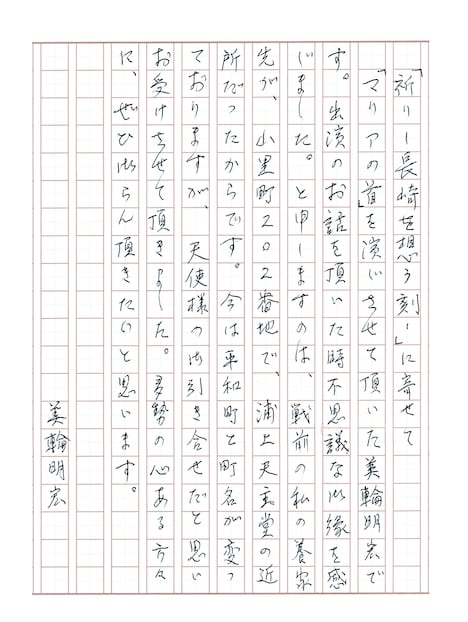 「祈り―長崎を想う刻―」に寄せて
「マリアの首」を演じさせて頂いた美輪明宏で
す。出演のお話を頂いた時不思議な御縁を感
じました。と申しますのは、戦前の私の養家
先が、山里町202番地で、浦上天主堂の近
所だったからです。今は平和町と町名が変っ
ておりますが、天使様の御引き合せだと思い
お受けさせて頂きました。多勢の心ある方々
に、ぜひ御らん頂きたいと思います。
美輪明宏